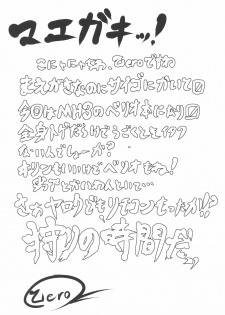 マエガキッ!
こにゃにゃちわ、Zeroですわ
まえがきなのにサイゴにかいて〼
今回はMH3のベリオ本になり〼
全身トゲだらけでうごくとイタク
ないんでしょーか?
オリンもいいけどベリオもね!
さぁヤロウどもリモコンもったか!?
狩りの時間だッ
Zero